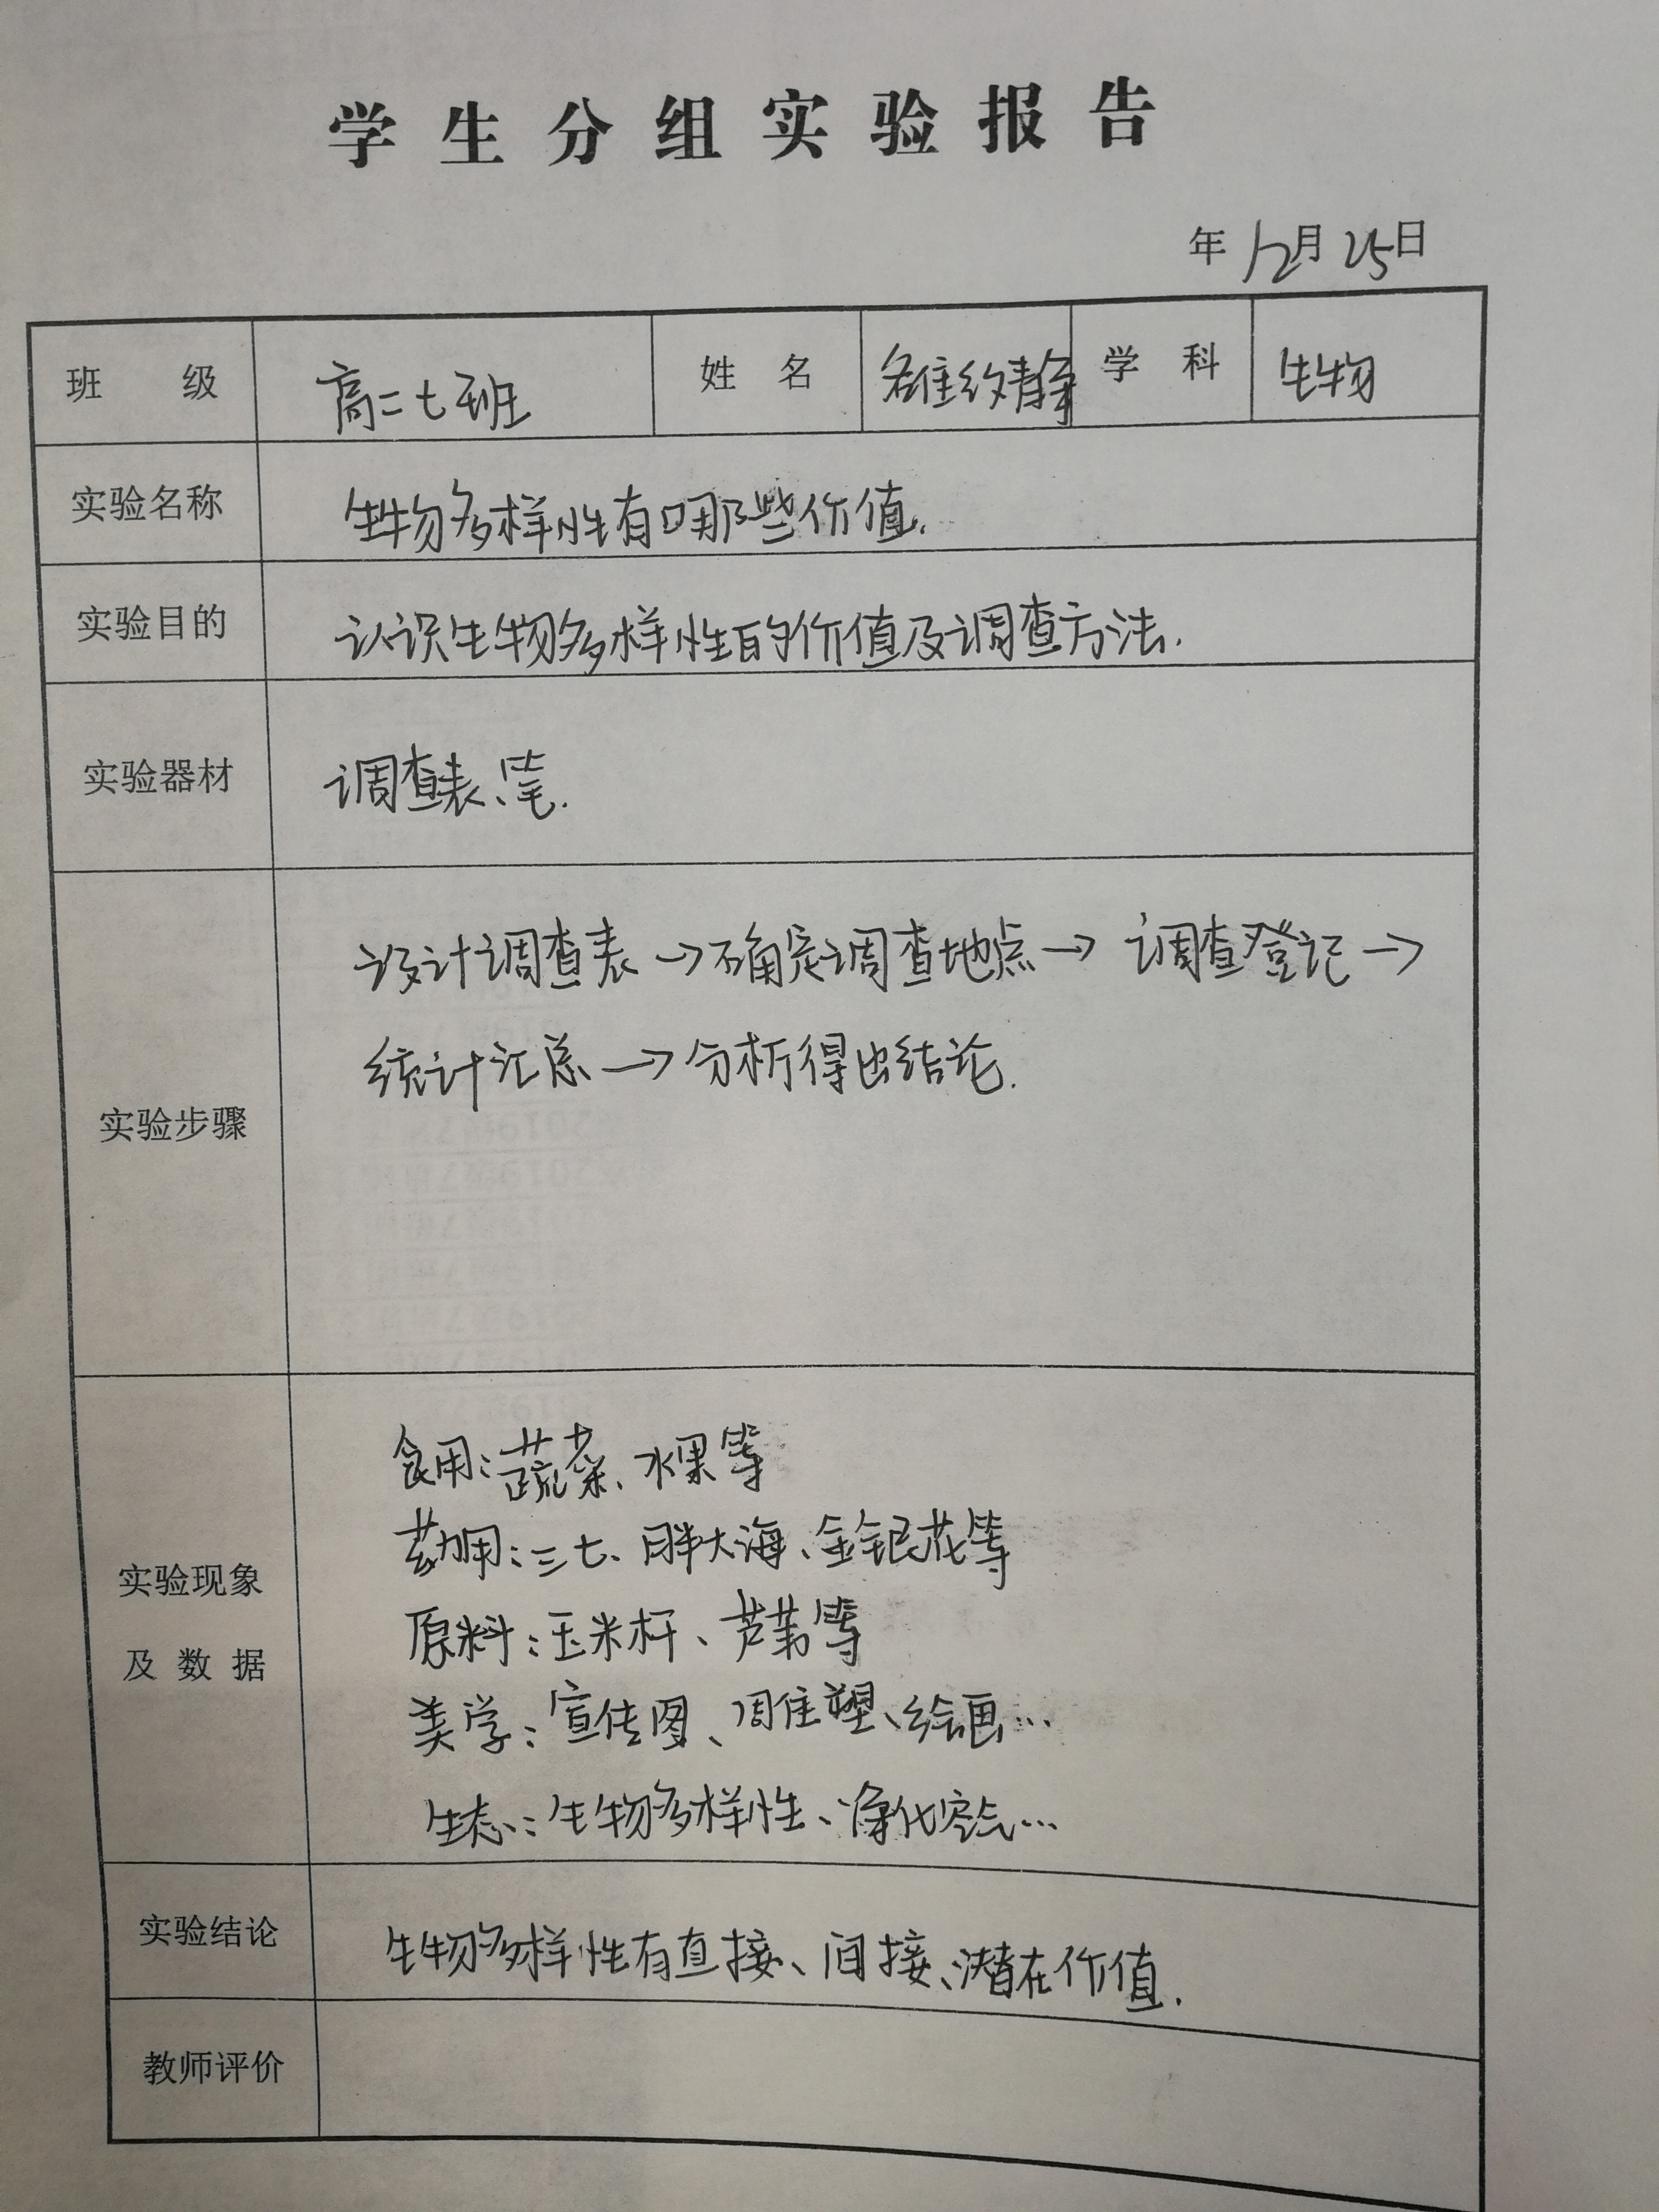 学生分组实验报告
年12月25日
班级 高二七班 姓名 雒约静 学科 生物
实验名称 生物多样性有哪些价值.
实验目的 认识生物多样性的价值及调查方法.
实验器材 调查表、笔.
设计调查表→确定调查地点→调查登记→
统计汇总→分析得出结论.
实验步骤
食用:蔬菜、水果等
药用:三七、胖大海、金银花等
实验现象
原料:玉米杆、芦苇等
及数据
美学:宣传图、雕塑、绘画…
生态:生物多样性、净化空气…
实验结论 生物多样性有直接、间接、潜在价值.
教师评价